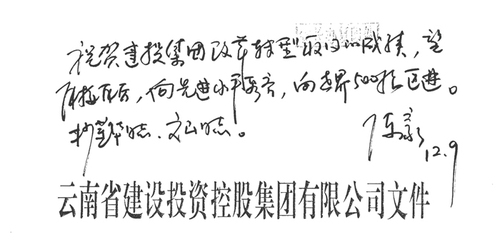 祝贺建投集团改革转型取得的成绩,望
再接再厉,向先进水平看齐,向世界500强迈进。
抄 同志、文山同志。
陈豪
12.9
云南省建设投资控股集团有限公司文件